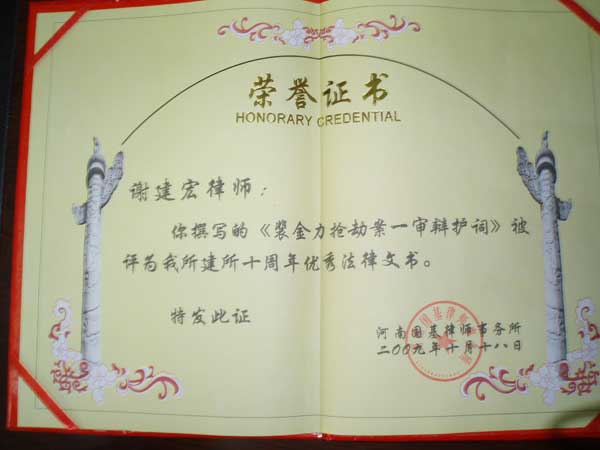 荣誉证书
HONORARY CREDENTIAL
谢建宏律师：
你撰写的《裴金力抢劫案一审辩护词》被
评为我所建所十周年优秀法律文书。
特发此证
河南国基律师事务所
二00九年十月十八日